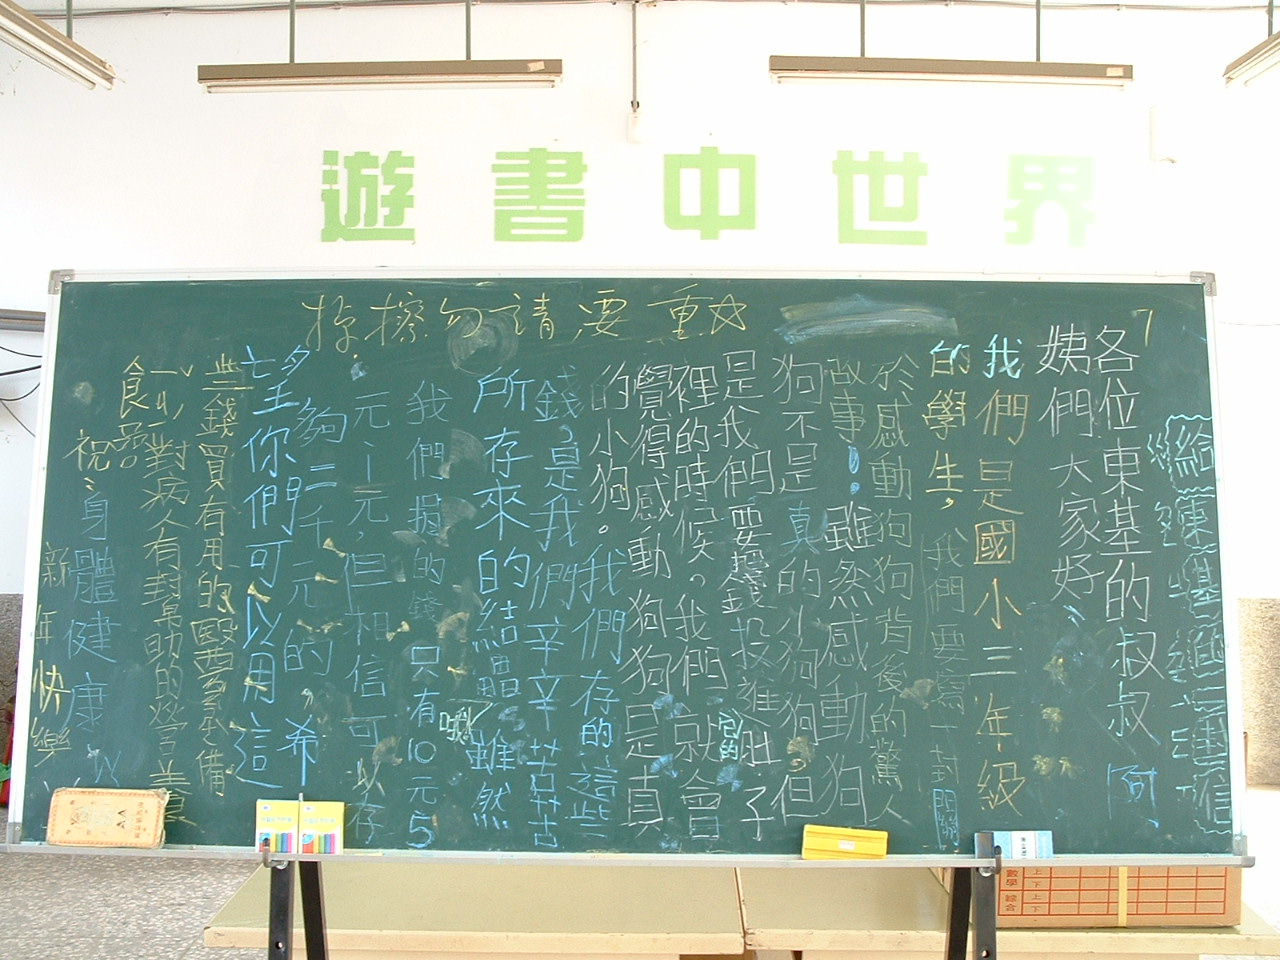 遊書中世界
☆重要請勿擦掉
給東基的一封信
各位東基的叔叔阿
姨們大家好
我們是國小三年級
的學生，我們要寫一封關
於感動狗狗背後的驚人
故事！雖然感動狗
狗不是真的小狗狗但
是我們要投錢進肚子
裡的時候。我們就會
覺得感動狗狗是真
的小狗。我們存的這些
錢，是我們辛辛苦苦
所存來的結晶哦雖然
我們捐的錢只有10元5
元1元，但相信可以存
夠二千元的希
望你們可以用這
些錢買有用的醫
一些對病人有幫助的營養
食品
祝：身體健康
新年快樂